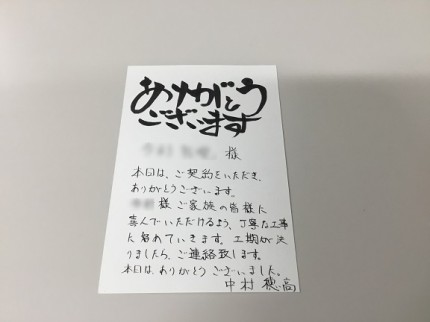 ありがとう
ございます
様
本日は、ご契約をいただき、
ありがとうございます。
様ご家族の皆様に
喜んでいただけるよう、丁寧な工事
に努めていきます。工期が決
りましたら、ご連絡致します。
本日は、ありがとうございました。
中村 穂高